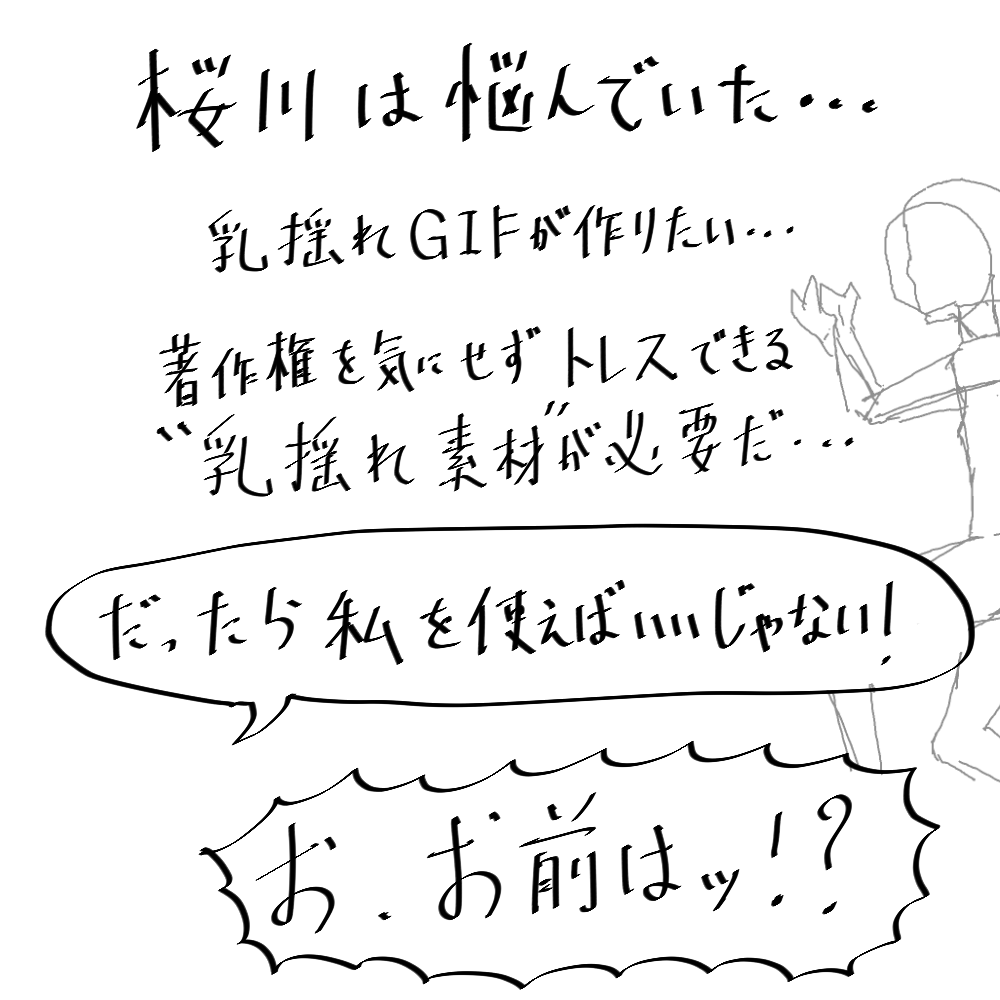 桜川は悩んでいた…
乳揺れGIFが作りたい…
著作権を気にせずトレスできる
〝乳揺れ素材〟が必要だ…
だったら私を使えばいいじゃない!
お.お前はッ!?